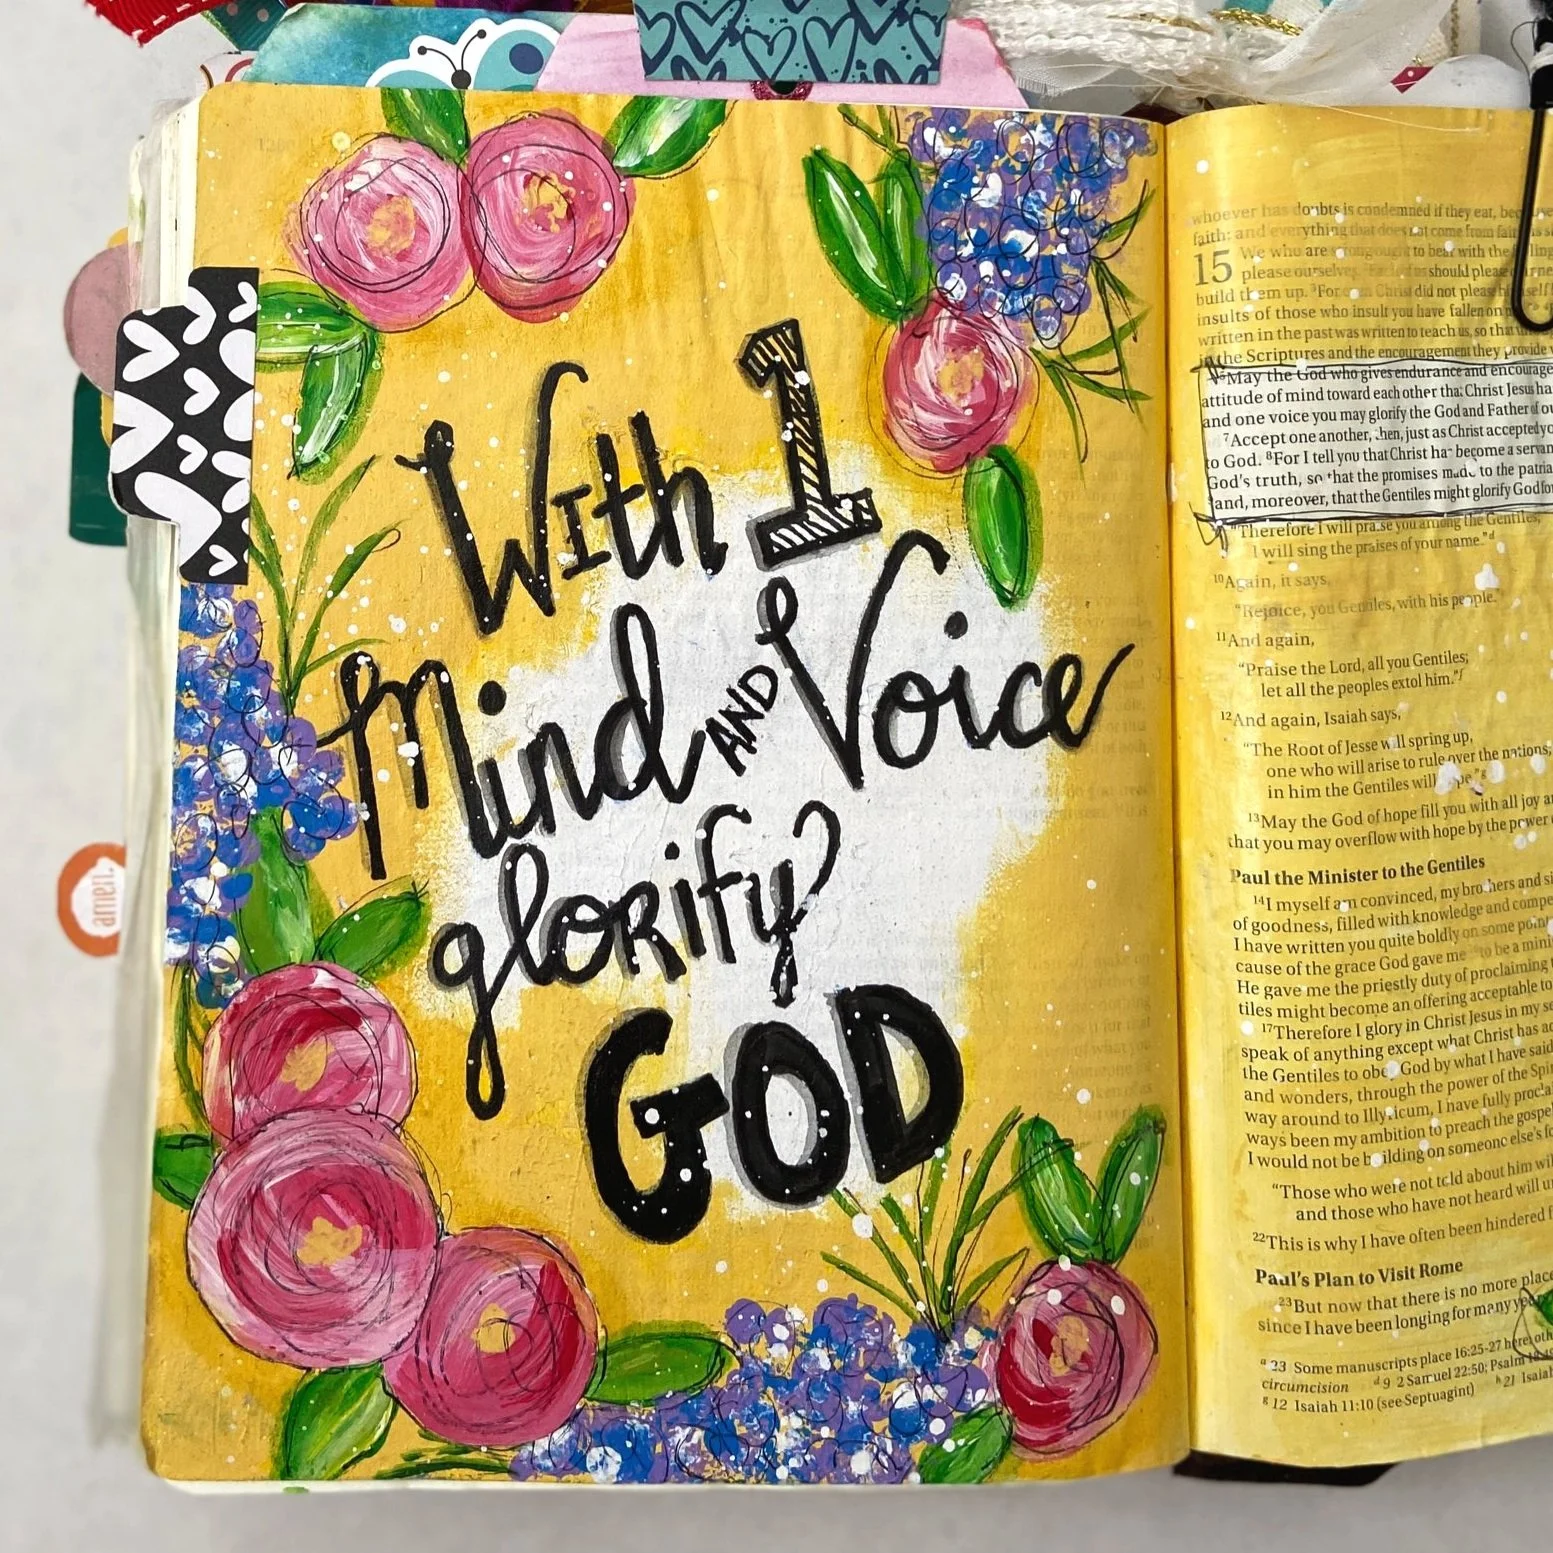 amen.
With 1
Mind AND Voice
glorify
GOD
whoever has doubts is condemned if they eat,
faith; and everything that does not come from
15 We who are strong ought to bear with the
please ourselves. should please
build them up. ³For even Christ did not please himself
insults of those who insult you have fallen on
written in the past was written to teach us, so that
in the Scriptures and the encouragement they provide
⁵May the God who gives endurance and
attitude of mind toward each other that Christ Jesus
and one voice you may glorify the God and Father of
⁷Accept one another, then, just as Christ accepted
to God. ⁸For I tell you that Christ has become a
God's truth, so that the promises made to the
and, moreover, that the Gentiles might glorify God
"Therefore I will praise you among the Gentiles;
I will sing the praises of your name."ᵈ
¹⁰Again, it says,
"Rejoice, you Gentiles, with his people."
¹¹And again,
"Praise the Lord, all you Gentiles;
let all the peoples extol him."ᶠ
¹²And again, Isaiah says,
"The Root of Jesse will spring up,
one who will arise to rule over the nations;
in him the Gentiles will hope."ᵍ
¹³May the God of hope fill you with all joy
that you may overflow with hope by the power
Paul the Minister to the Gentiles
¹⁴I myself am convinced, my brothers and
of goodness, filled with knowledge and
I have written you quite boldly on some
cause of the grace God gave me to be a
He gave me the priestly duty of proclaiming
tiles might become an offering acceptable to
¹⁷Therefore I glory in Christ Jesus in my
speak of anything except what Christ has
the Gentiles to obey God by what I have said
and wonders, through the power of the
way around to Illyricum, I have fully
ways been my ambition to preach the
I would not be building on someone else's
"Those who were not told about him
and those who have not heard will
²²This is why I have often been hindered
Paul's Plan to Visit Rome
²³But now that there is no more place
since I have been longing for many
ᵃ 23 Some manuscripts place 16:25-27 here;
circumcision ᵈ 9 2 Samuel 22:50; Psalm
ᵍ 12 Isaiah 11:10 (see Septuagint) ʰ 21 Isaiah